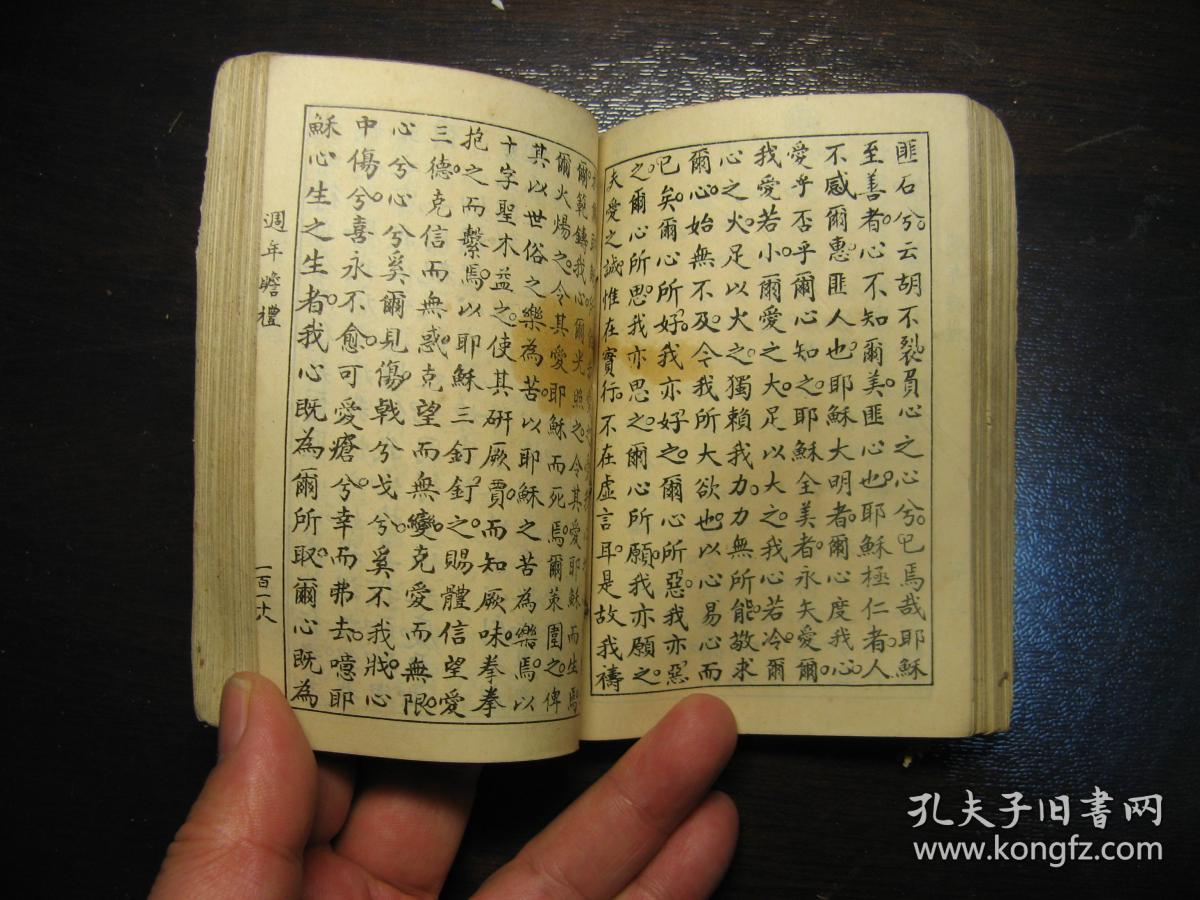 匪石兮。云胡不裂。員心之心兮。已焉哉。耶穌
至善者。心不知爾美。匪心也。耶穌極仁者。人
不感爾惠。匪人也。耶穌大明者。爾心度我心。
愛乎否乎。爾心知之。耶穌全美者。永矢愛爾。
我愛若小。爾愛之大。足以大之。我心若冷。爾
心之火。足以火之。獨賴我力。力無所能。敬求
爾心。始無不及。今我所大欲也。以心易心而
已矣。爾心所好。我亦好之。爾心所惡。我亦惡
之。爾心所思。我亦思之。爾心所願。我亦願之。
夫愛之誠。惟在實行。不在虛言耳。是故我禱
爾範鑄我心。爾光照之。令其愛耶穌而生焉
爾火煬之。令其愛耶穌而死焉。爾策圍之。俾
其以世俗之樂為苦。以耶穌之苦為樂焉。以
十字聖木益之。使其研厥賈。而知厥味。拳拳
抱之而繫焉。以耶穌三釘釘之。賜體信望愛
三德。克信而無惑。克望而無變。克愛而無限。
心兮心兮。奚爾見傷。戟兮戈兮。奚不我戕。心
中傷兮。喜永不愈。可愛瘡兮。幸而弗去。噫耶
穌心。生之生者。我心既為爾所取。爾心既為
週年瞻禮
一百一十八
孔夫子旧书网
www.kongfz.com